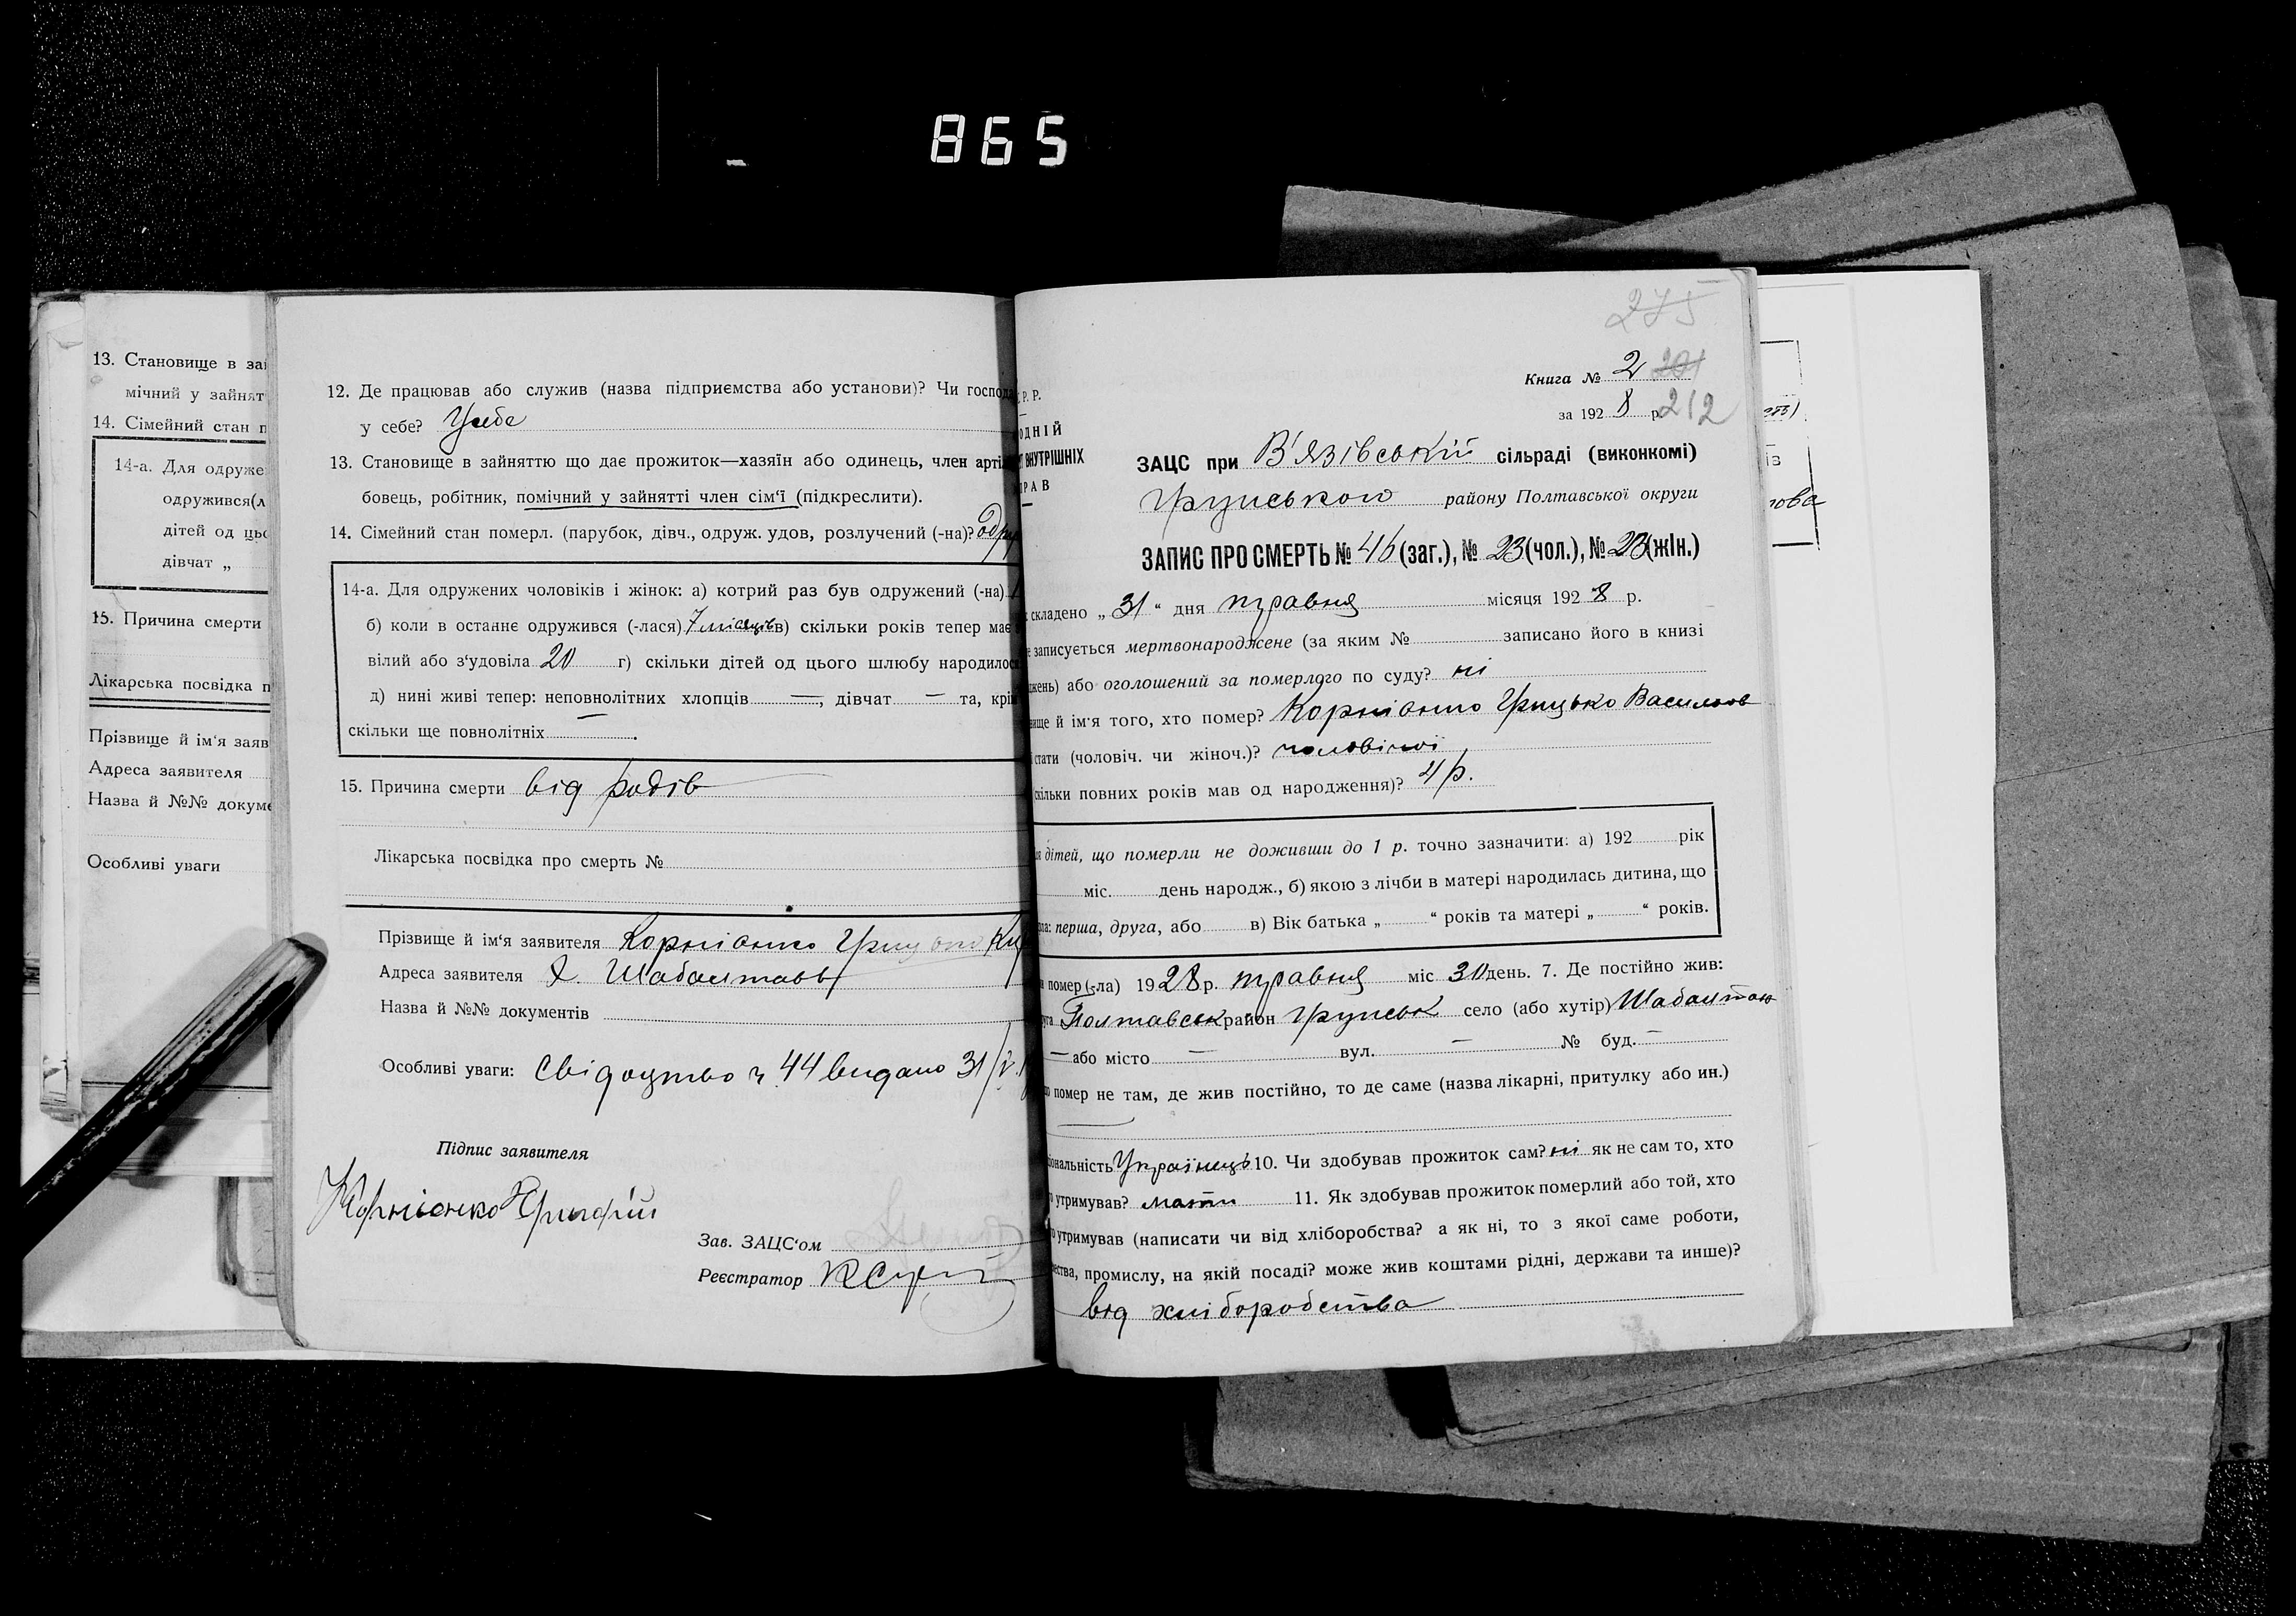 865
13. Становище в зай
мічний у зайнят
14. Сімейний стан п
14-а. Для одруже
одружився(л
дітей од цьо
дівчат „
15. Причина смерти
Лікарська посвідка п
Прізвище й ім'я заяв
Адреса заявителя
Назва й №№ докуме
Особливі уваги
12. Де працював або служив (назва підприємства або установи)? Чи господа
у себе? У себе
13. Становище в зайняттю що дає прожиток—хазяїн або одинець, член арті
бовець, робітник, помічний у зайнятті член сім'ї (підкреслити).
14. Сімейний стан померл. (парубок, дівч., одруж. удов, розлучений (-на)? одру
14-а. Для одружених чоловіків і жінок: а) котрий раз був одружений (-на)
б) коли в останнє одружився (-лася) 7 місяців в) скільки років тепер має
вілий або з'удовіла 20 г) скільки дітей од цього шлюбу народилос
д) нині живі тепер: неповнолітних хлопців —, дівчат — та, крім
скільки ще повнолітніх — .
15. Причина смерти від родів
Лікарська посвідка про смерть №
Прізвище й ім'я заявителя Корніэнко
Адреса заявителя х. Шабалтаівь
Назва й №№ документів
Особливі уваги: Свідоцтво ч 44 видано 31/V.
Підпис заявителя
Корніенко Григорій
Зав. ЗАЦС'ом
Реєстратор
275
Книга № 2 201
за 192 8 р. 212
Р. Р.
ОДНІЙ
ВНУТРІШНІХ
РАВ
ЗАЦС при В'язівській сільраді (виконкомі)
Грунського району Полтавської округи
ЗАПИС ПРО СМЕРТЬ № 46 (заг.), № 23 (чол.), № 23 (жін.)
складено „ 31 “ дня травня місяця 192 8 р.
записується мертвонароджене (за яким № записано його в книзі
жень) або оголошений за померлого по суду? ні
ще й ім'я того, хто помер? Корніэнко Грицько Васильов
стати (чоловіч. чи жіноч.)? чоловічої
скільки повних років мав од народження)? 4 р.
дітей, що померли не доживши до 1 р. точно зазначити: а) 192 рік
міс. день народж., б) якою з лічби в матері народилась дитина, що
перша, друга, або в) Вік батька „ “ років та матері „ “ років.
помер (-ла) 1928 р. травня міс 30 день. 7. Де постійно жив:
Полтавськ район Грунськ село (або хутір) Шабалтаів
— або місто — вул. — № буд. —
помер не там, де жив постійно, то де саме (назва лікарні, притулку або ин.)
—
іональність Українець 10. Чи здобував прожиток сам? ні як не сам то, хто
утримував? мати 11. Як здобував прожиток померлий або той, хто
утримував (написати чи від хліборобства? а як ні, то з якої саме роботи,
ества, промислу, на якій посаді? може жив коштами рідні, держави та инше)?
від хліборобства